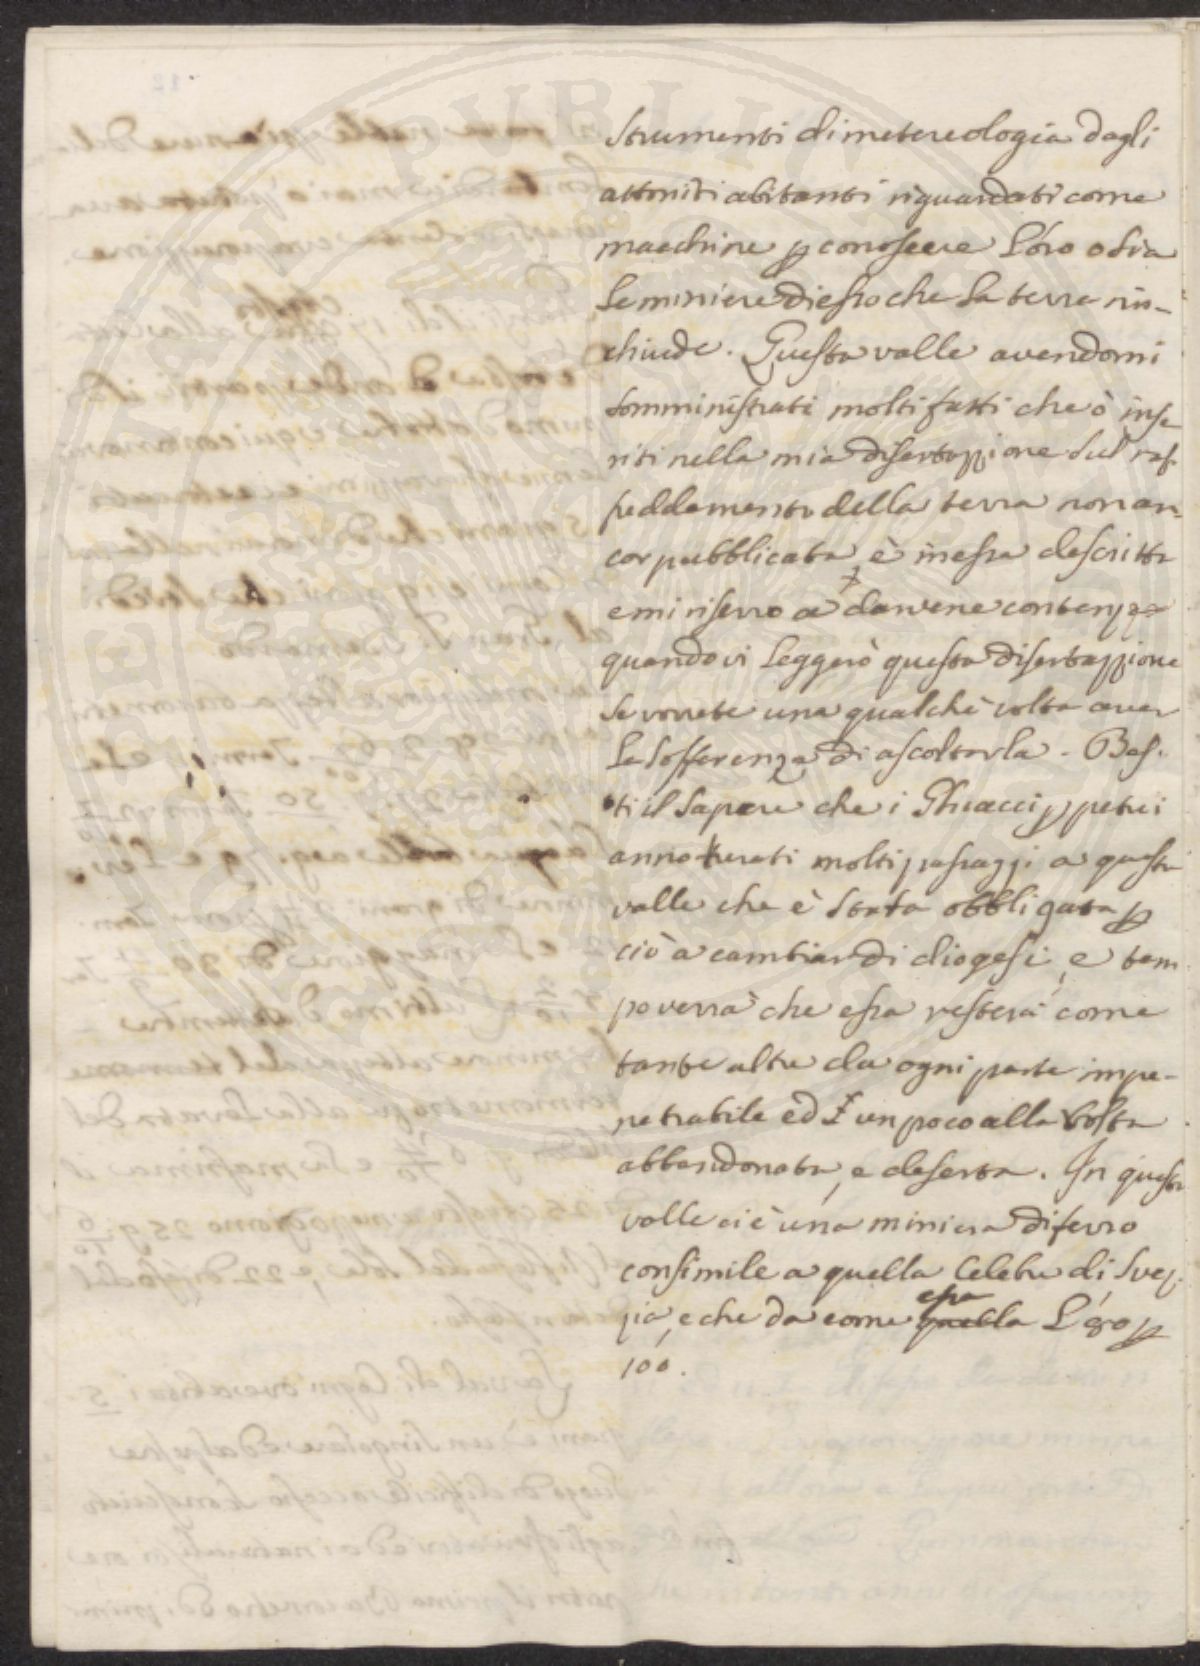 Strumenti di metereologia dagli
attoniti abitanti riguardati come
macchine p conoscere l'oro osia
le miniere di esso che la terra rin-
chiude. Questa valle avendomi
somministrati molti fatti che ò inse
riti nella mia disertazzione sul raf-
freddamento della terra non an-
cor pubblicata, è in essa descritta
e mi riserro a darvene contezza
quando vi leggerò questa disertazzione
se vorrete una qualche volta aver
la sofferenza di ascoltarla. Bas-
ti il sapere che i Ghiacci ppetui
anno turati molti passazzi a questa
valle che è stata obbligata p
ciò a cambiar di diogesi, e tem
po verrà che essa resterà come
tante altre da ogni parte impe-
netrabile ed un poco alla volta
abbandonata, e deserta. In questa
valle ci è una miniera di ferro
consimile a quella celebre di Svez-
zia, e che da come essa quella l'80 p
100.